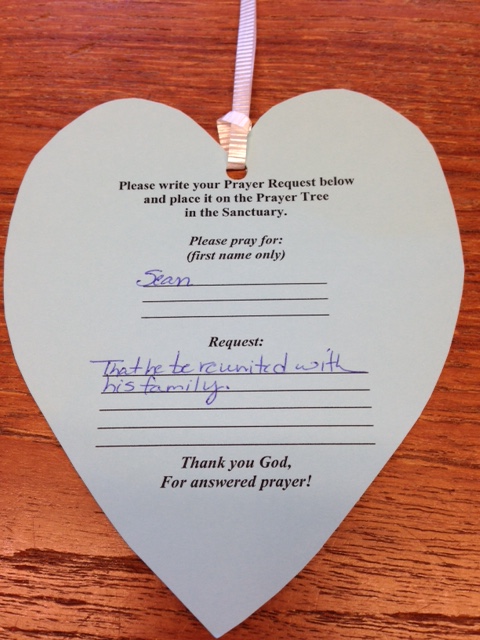 Please write your Prayer Request below
and place it on the Prayer Tree
in the Sanctuary.
Please pray for:
(first name only)
Sean
Request:
That he be reunited with
his family.
Thank you God,
For answered prayer!